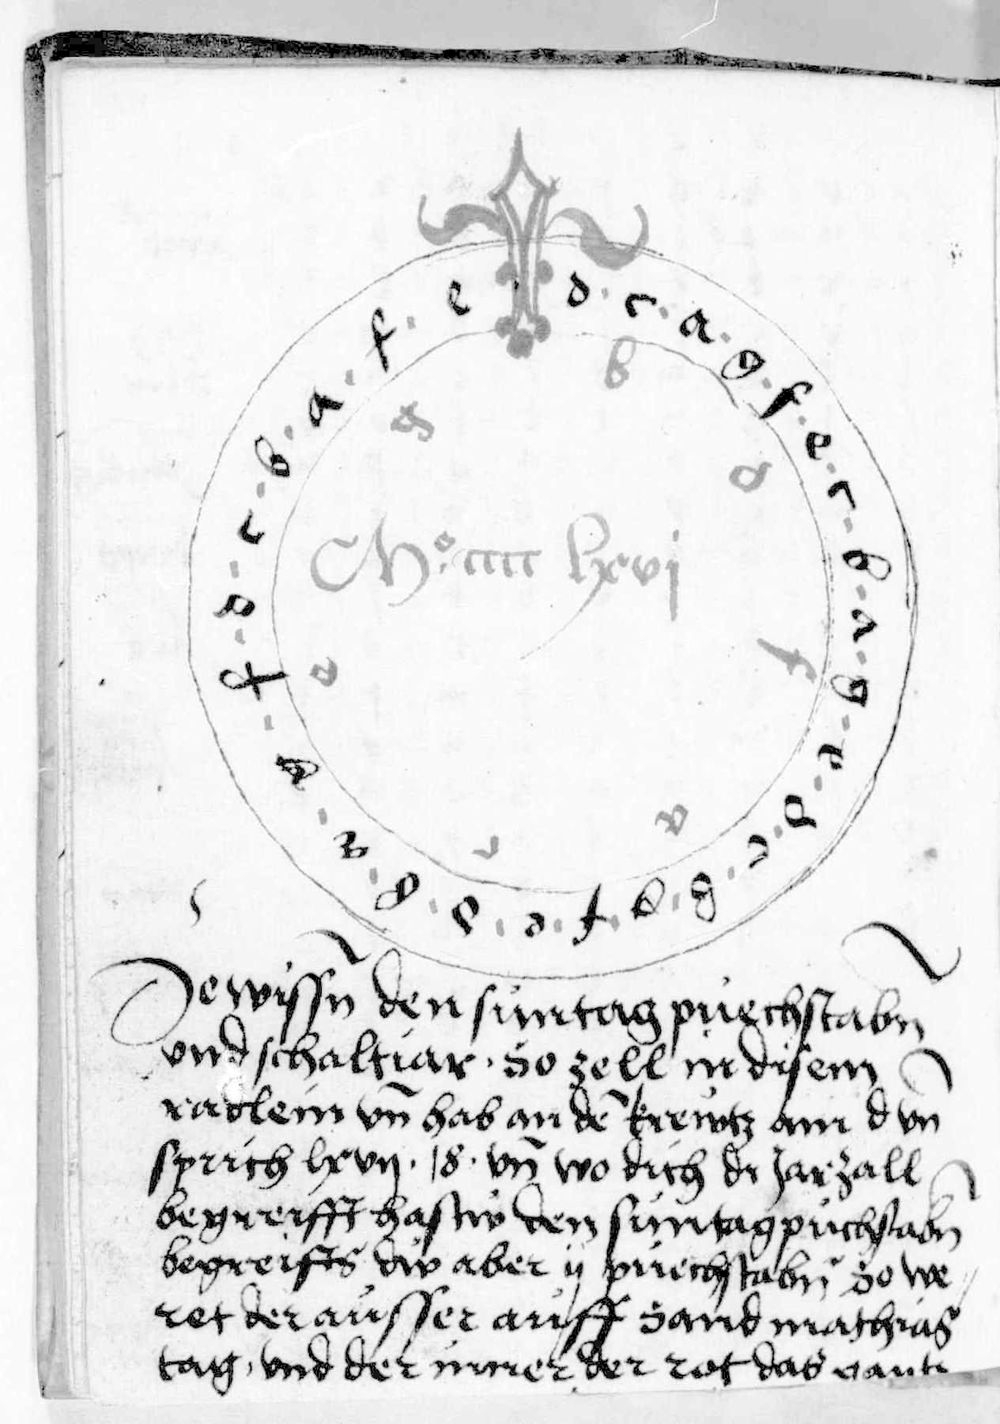 d · c · a · g · f · e · c · b · a · g · e · d · c · b · g · f · e · d · b · a · g · f · d · c · b · a · f · e
b
d
f
a
c
e
g
Mº cccc lxvi
Ze wissn̄ den suntag puechstabn
vnd schaltiar · So zell in disem
radlein vn̄ hab an dē krewtz am d vn̄
sprich lxvij · 18 · vn̄ wo dich di Jarzall
begreifft hastw den suntagpuchstabn
begreifts diw aber ij puechstabn So we
ret der ausser auff Sand mathias
tag · vnd der inner der ret das gantz